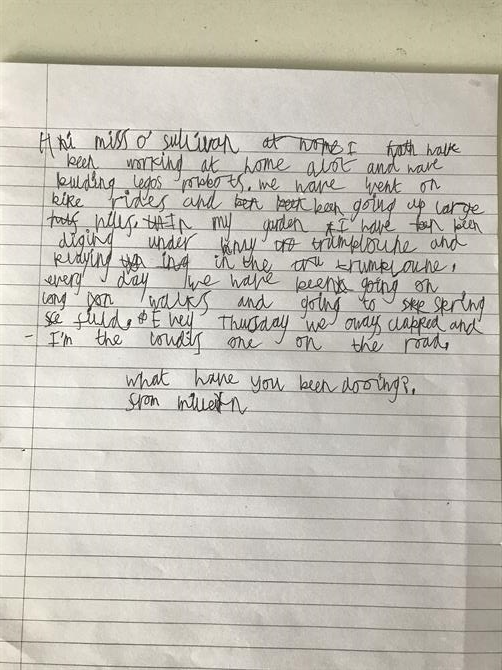 Hi miss o' sullivan at home I have
been working at home alot and have
building legos robots. we have went on
bike rides and been going up large
hills. In my garden I have been
diging under my trumploune and
in the trumploune.
every day we have been going on
long walks and going to spring
feild. Evey Thursday we oways clapped and
I'm the loudis one on the road.
what have you been dooing?.
from